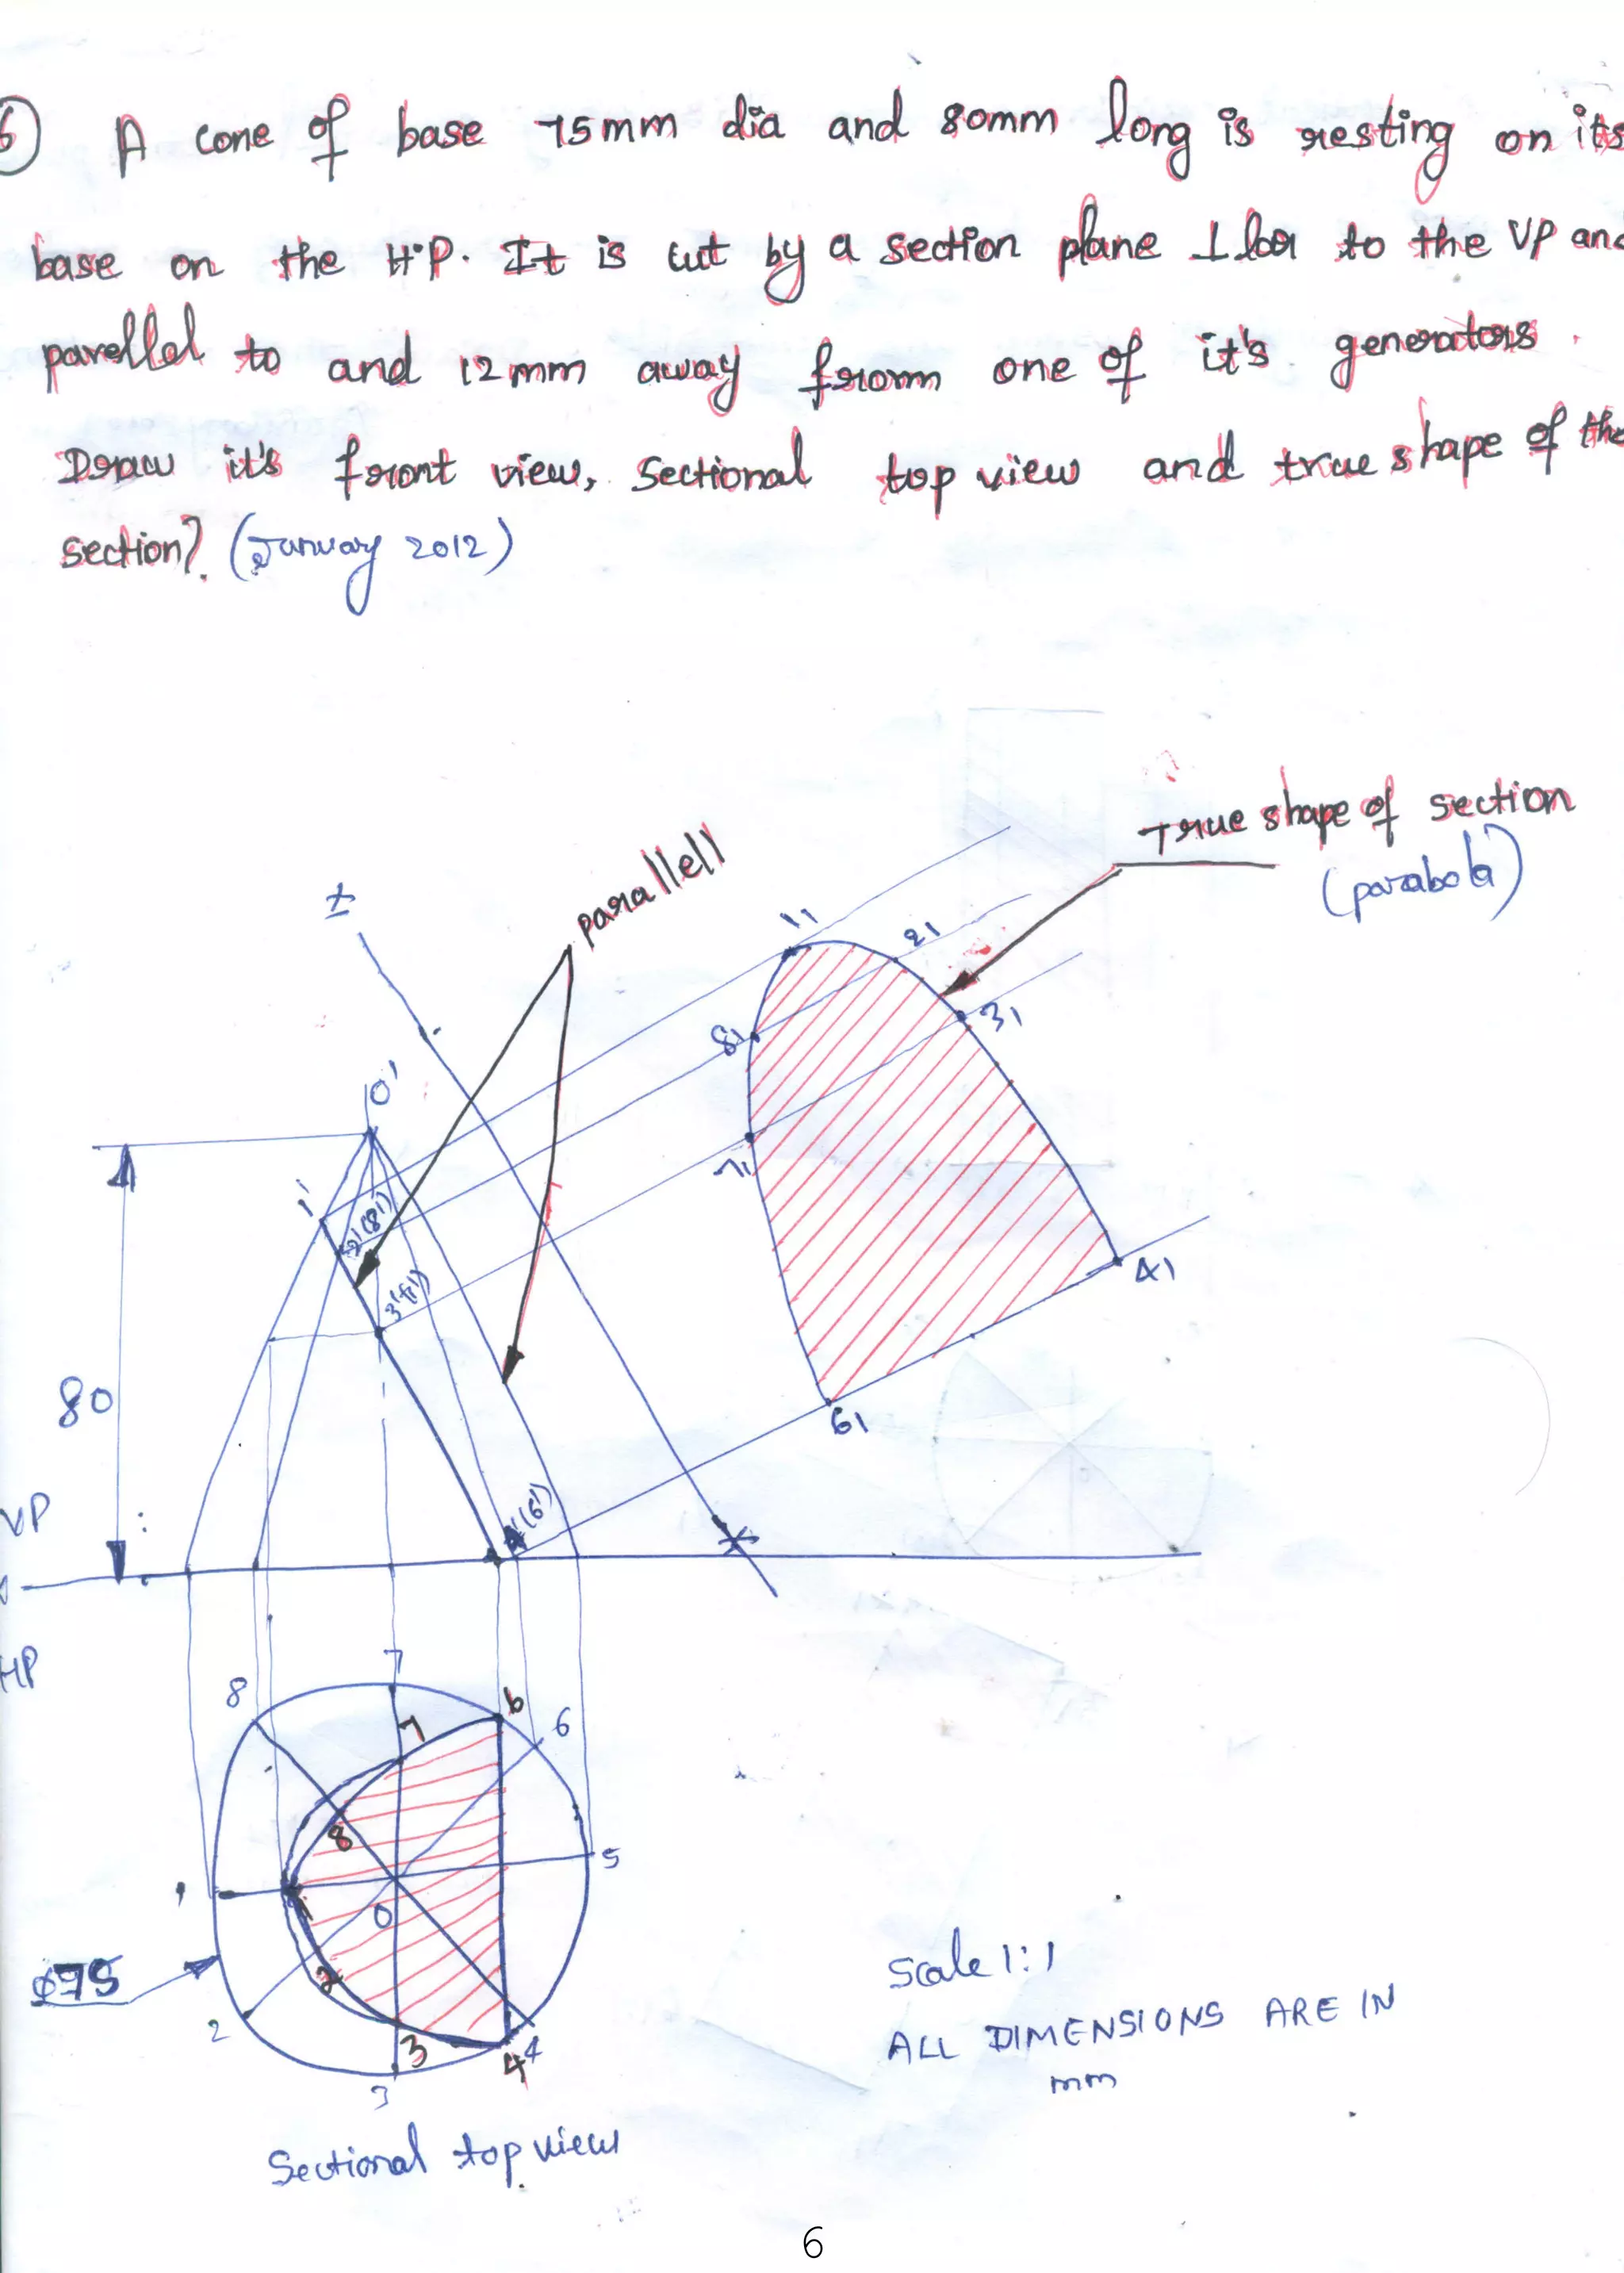 6) A cone of base 75mm dia and 80mm long is resting on its
base on the H.P. It is cut by a section plane ⊥lar to the VP and
parellel to and 12mm away from one of it's generators.
Draw it's front view, sectional top view and true shape of the
section? (January 2012)
True shape of section
(parabola)
parallell
11
21
31
81
71
41
61
O'
1'
2'(8')
3'(7')
4'(6')
80
VP
HP
7
8
6
6
7
8
1
5
O
2
2
3
4
4
3
φ75
Scale 1:1
ALL DIMENSIONS ARE IN
mm
Sectional top view
6